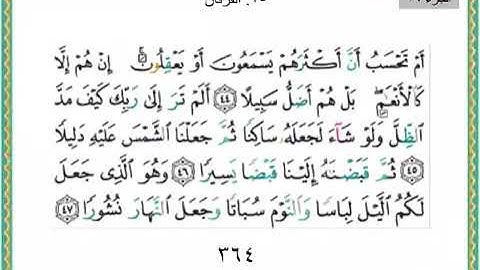 ٢٥. الفرقان
أَمْ تَحْسَبُ أَنَّ أَكْثَرَهُمْ يَسْمَعُونَ أَوْ يَعْقِلُونَ ۚ إِنْ هُمْ إِلَّا
كَالْأَنْعَٰمِ ۖ بَلْ هُمْ أَضَلُّ سَبِيلًا ﴿٤٤﴾ أَلَمْ تَرَ إِلَىٰ رَبِّكَ كَيْفَ مَدَّ
الظِّلَّ وَلَوْ شَآءَ لَجَعَلَهُ سَاكِنًا ثُمَّ جَعَلْنَا الشَّمْسَ عَلَيْهِ دَلِيلًا
﴿٤٥﴾ ثُمَّ قَبَضْنَٰهُ إِلَيْنَا قَبْضًا يَسِيرًا ﴿٤٦﴾ وَهُوَ الَّذِى جَعَلَ
لَكُمُ الَّيْلَ لِبَاسًا وَالنَّوْمَ سُبَاتًا وَجَعَلَ النَّهَارَ نُشُورًا ﴿٤٧﴾
٣٦٤